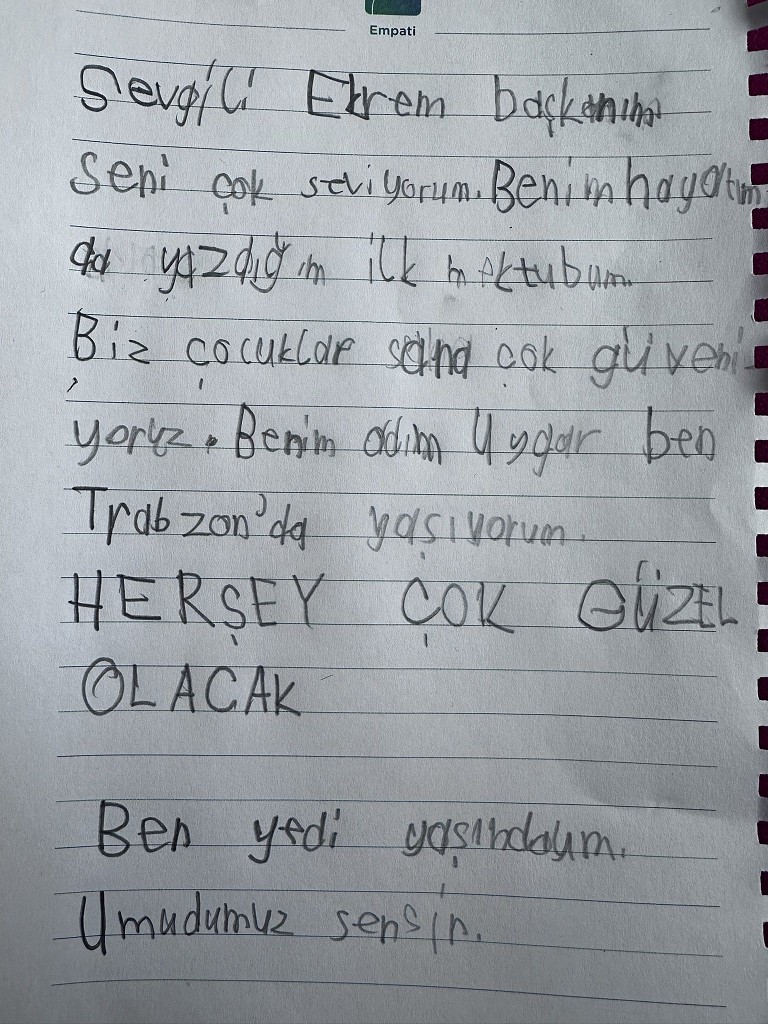 Empati
Sevgili Ekrem başkanım
Seni çok seviyorum. Benim hayatım
da yazdığım ilk mektubum.
Biz çocuklar sana çok güveni
yoruz. Benim adım Uygar ben
Trabzon'da yaşıyorum.
HERŞEY ÇOK GÜZEL
OLACAK
Ben yedi yaşındayım.
Umudumuz sensin.